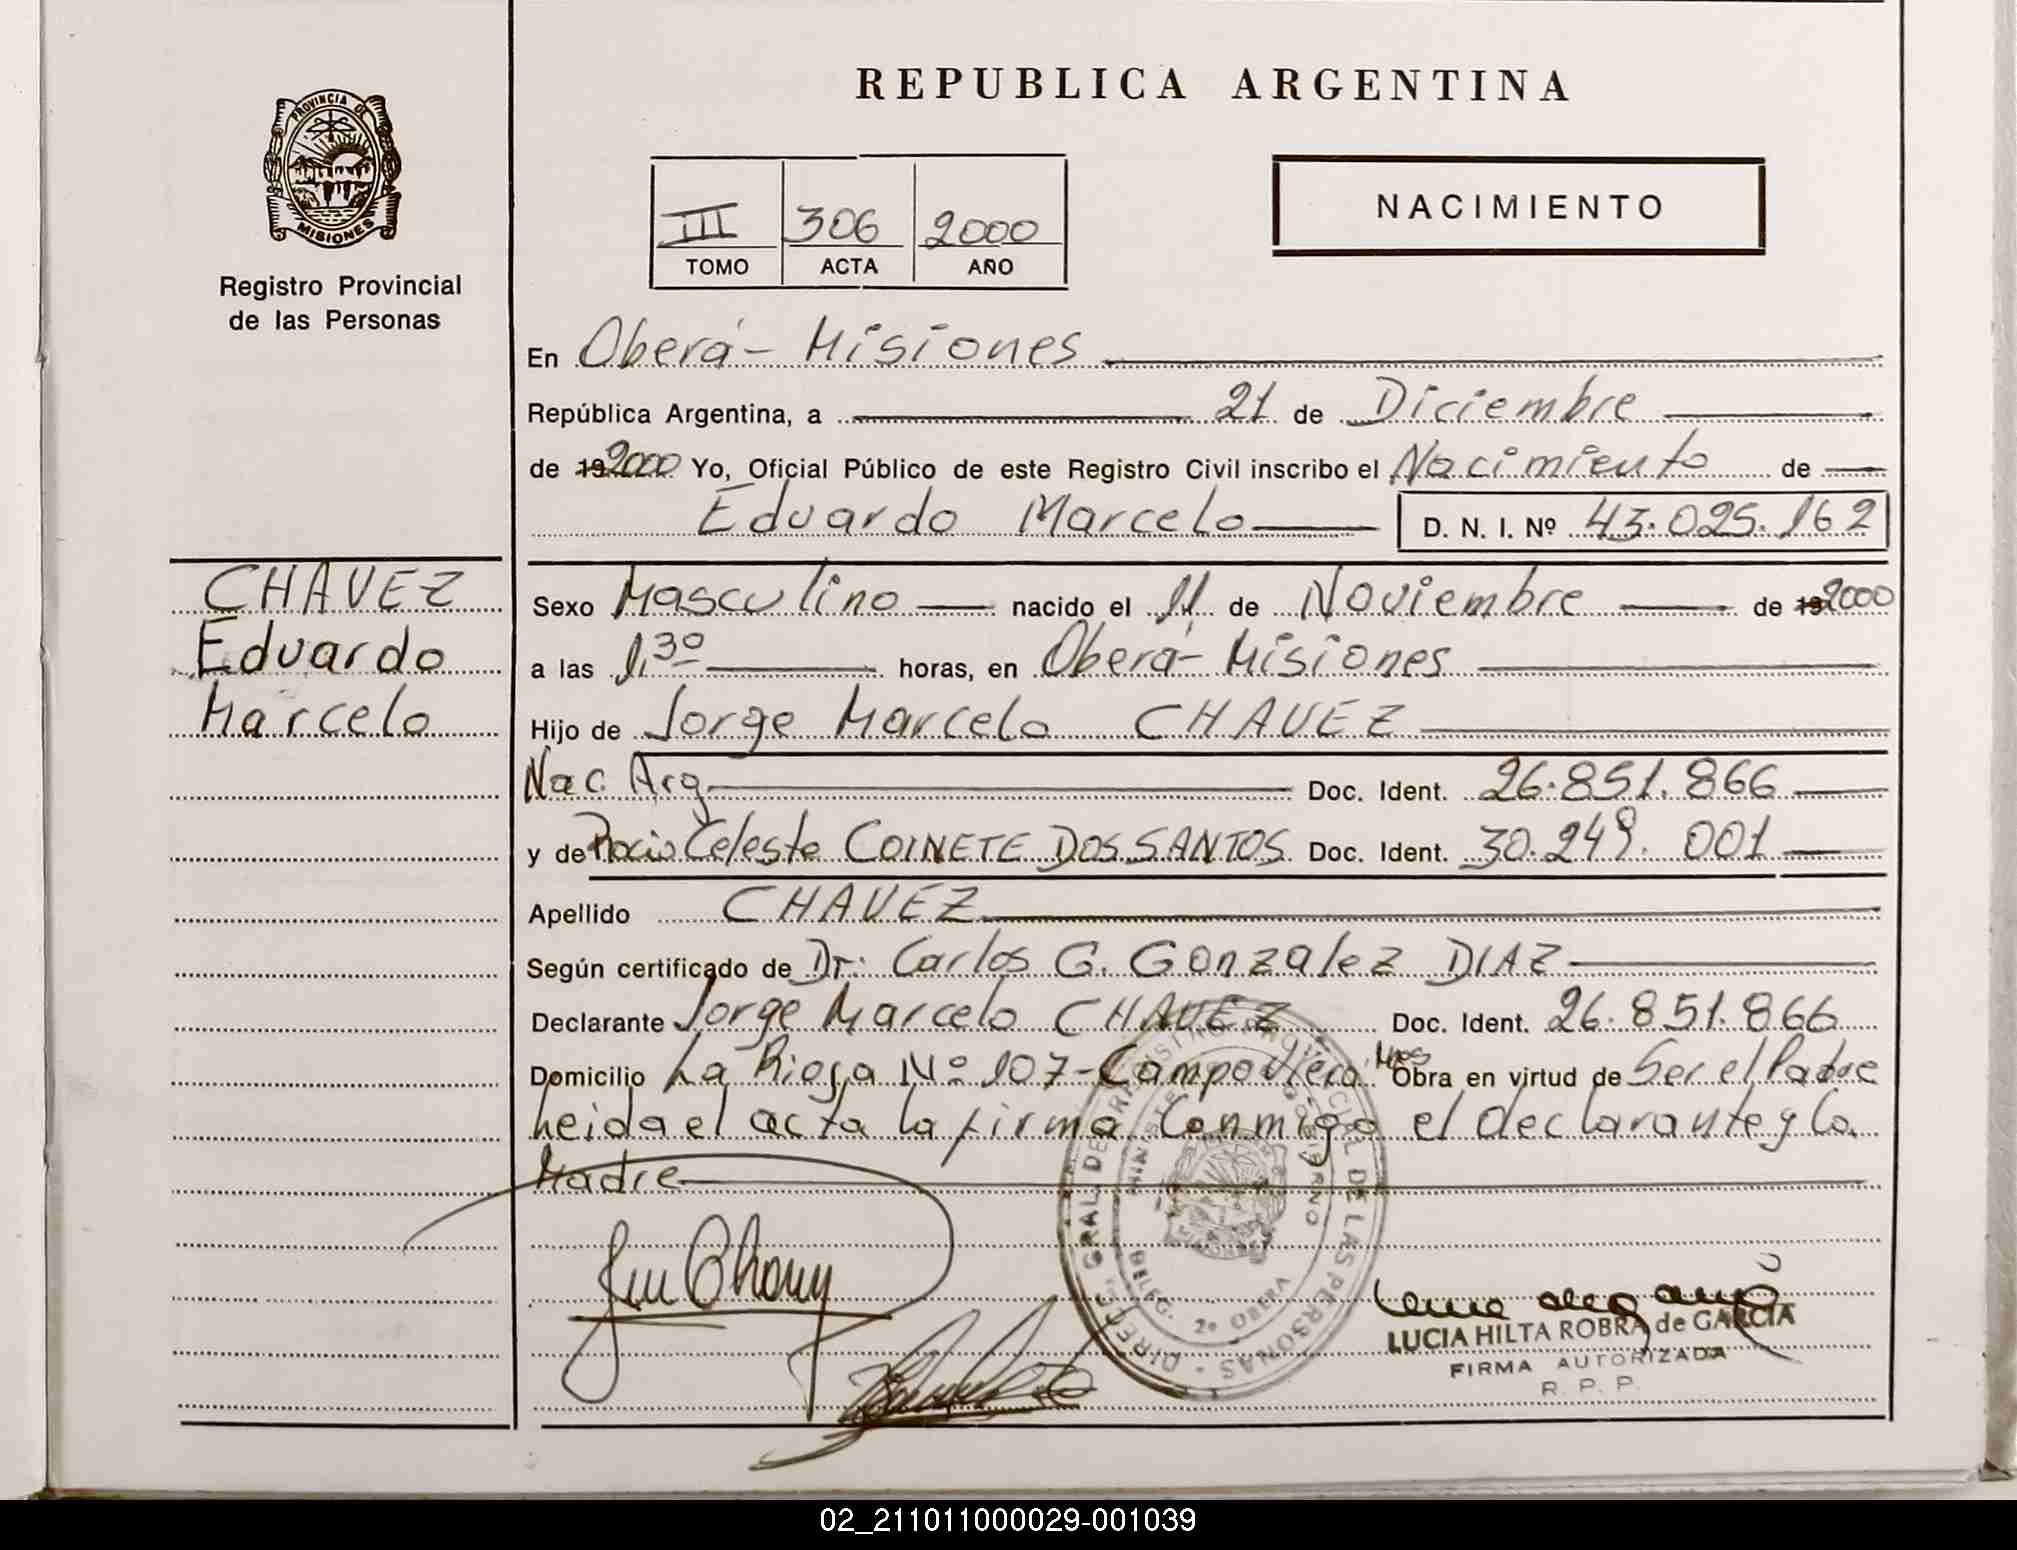 REPUBLICA ARGENTINA
PROVINCIA DE
MISIONES
Registro Provincial
de las Personas
III 306 2000
TOMO ACTA AÑO
NACIMIENTO
En Oberá - Misiones
República Argentina, a 21 de Diciembre
de 19 2000 Yo, Oficial Público de este Registro Civil inscribo el Nacimiento de
Eduardo Marcelo D. N. I. Nº 43.025.162
CHAVEZ
Eduardo
Marcelo
Sexo Masculino nacido el 11 de Noviembre de 19 2000
a las 1,30 horas, en Oberá - Misiones
Hijo de Jorge Marcelo CHAVEZ
Nac. Arg. Doc. Ident. 26.851.866
y de Rocio Celeste COINETE DOS SANTOS Doc. Ident. 30.249.001
Apellido CHAVEZ
Según certificado de Dr. Carlos G. Gonzalez DIAZ
Declarante Jorge Marcelo CHAVEZ Doc. Ident. 26.851.866
Domicilio La Rioja Nº 107 - Campo Viera Mnes Obra en virtud de Ser el Padre
Leida el acta la firma Conmigo el declarante y la
Madre
DIREC. GRAL. DE REGISTRO PROVINCIAL DE LAS PERSONAS
MINISTERIO DE GOBIERNO
DELEG. 2º OBERA
LUCIA HILTA ROBRA de GARCIA
FIRMA AUTORIZADA
R. P. P.
02_211011000029-001039